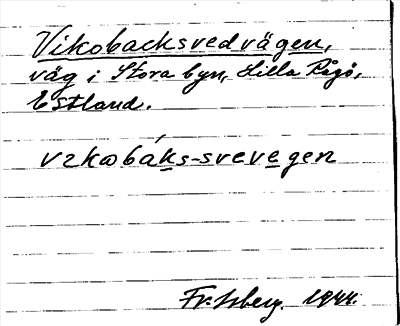 Vikobacksvedvägen,
väg i Stora byn, Lilla Rågö,
Estland.
vɩkωbáks-svevegen
1944.